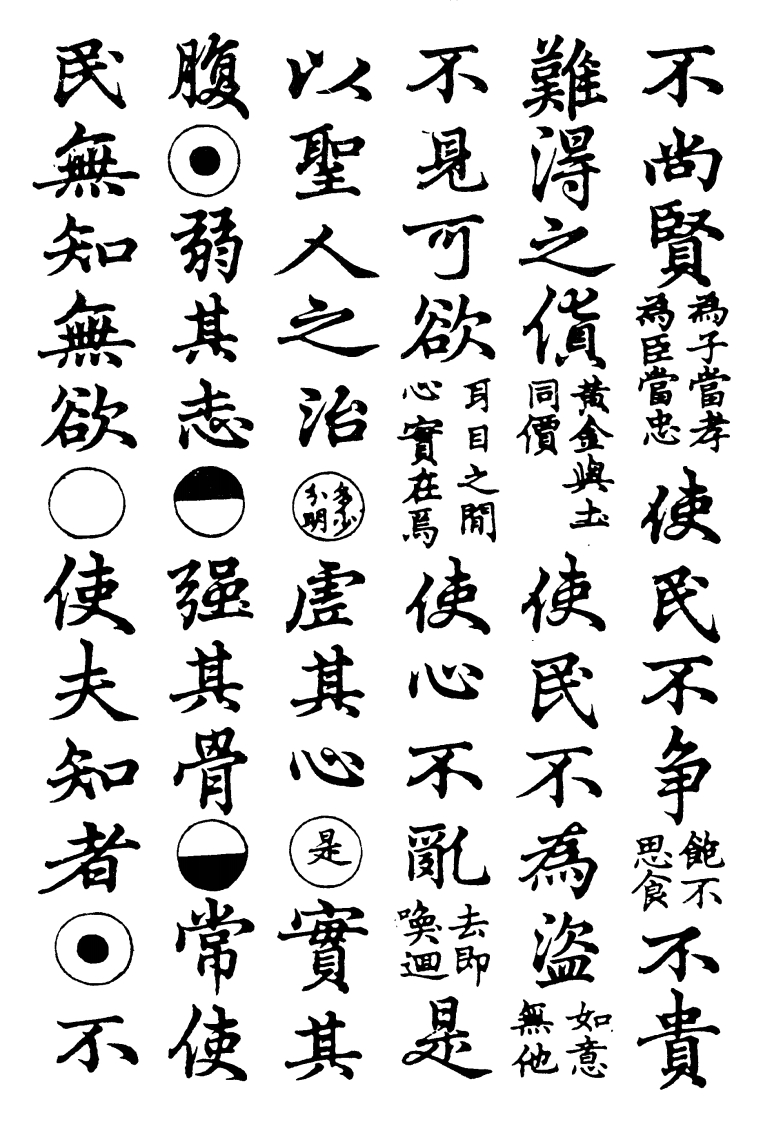 不尚賢為子當孝為臣當忠使民不爭飽不思食不貴
難得之貨黃金與土同價使民不為盜如意無他
不見可欲耳目之間心實在焉使心不亂去即喚迴是
以聖人之治多少分明虛其心是實其
腹弱其志強其骨常使
民無知無欲使夫知者不